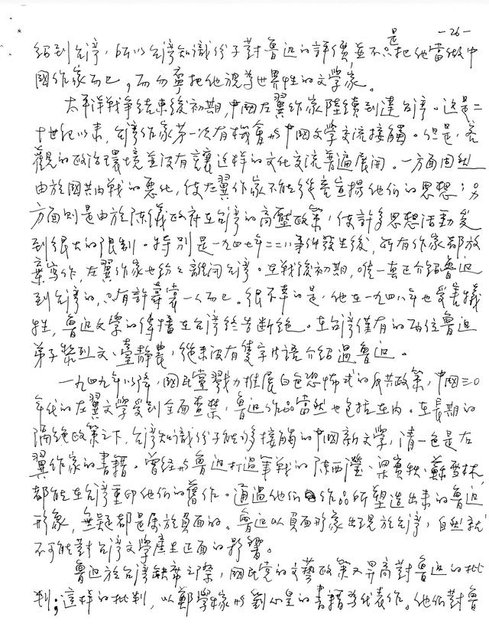 -26-
紹到台灣,所以台灣知識份子對魯迅的評價並不只是把他當做中
國作家而已,而勿寧把他視為世界性的文學家。
太平洋戰爭結束後初期,中國左翼作家陸續到達台灣。這是二
十世紀以來,台灣作家第一次有機會與中國文學交流接觸。但是,客
觀的政治環境並沒有讓這樣的文化交流普遍展開。一方面固然
由於國共內戰的惡化,使左翼作家不能繼續宣揚他們的思想;另一
方面則是由於陳儀政府在台灣的高壓政策,使許多思想活動受
到很大的限制。特別是一九四七年二二八事件發生後,所有作家都放
棄寫作,左翼作家也紛紛離開台灣。在戰後初期,唯一真正介紹魯迅
到台灣的,只有許壽裳一人而已。很不幸的是,他在一九四八年也受害犧
牲,魯迅文學的傳播在台灣終告斷絕。在台灣僅有的兩位魯迅
弟子黎烈文、臺靜農,從來沒有隻字片語介紹過魯迅。
一九四九年以後,國民黨戮力推展白色恐怖式的反共政策,中國三〇
年代的左翼文學受到全面查禁,魯迅作品當然也包括在內。在長期的
隔絕政策之下,台灣知識份子能夠接觸的中國新文學,清一色是右
翼作家的書籍。曾經與魯迅打過筆戰的陳西瀅、梁實秋、蘇雪林,
都能在台灣重印他們的舊作。通過他們的作品所塑造出來的魯迅
形象,無疑都是屬於負面的。魯迅以負面形象出現於台灣,自然就
不可能對台灣文學產生正面的影響。
魯迅於台灣缺席之際,國民黨的文藝政策又昇高對魯迅的批
判;這樣的批判,以鄭學稼與劉心皇的書籍為代表作。他們對魯